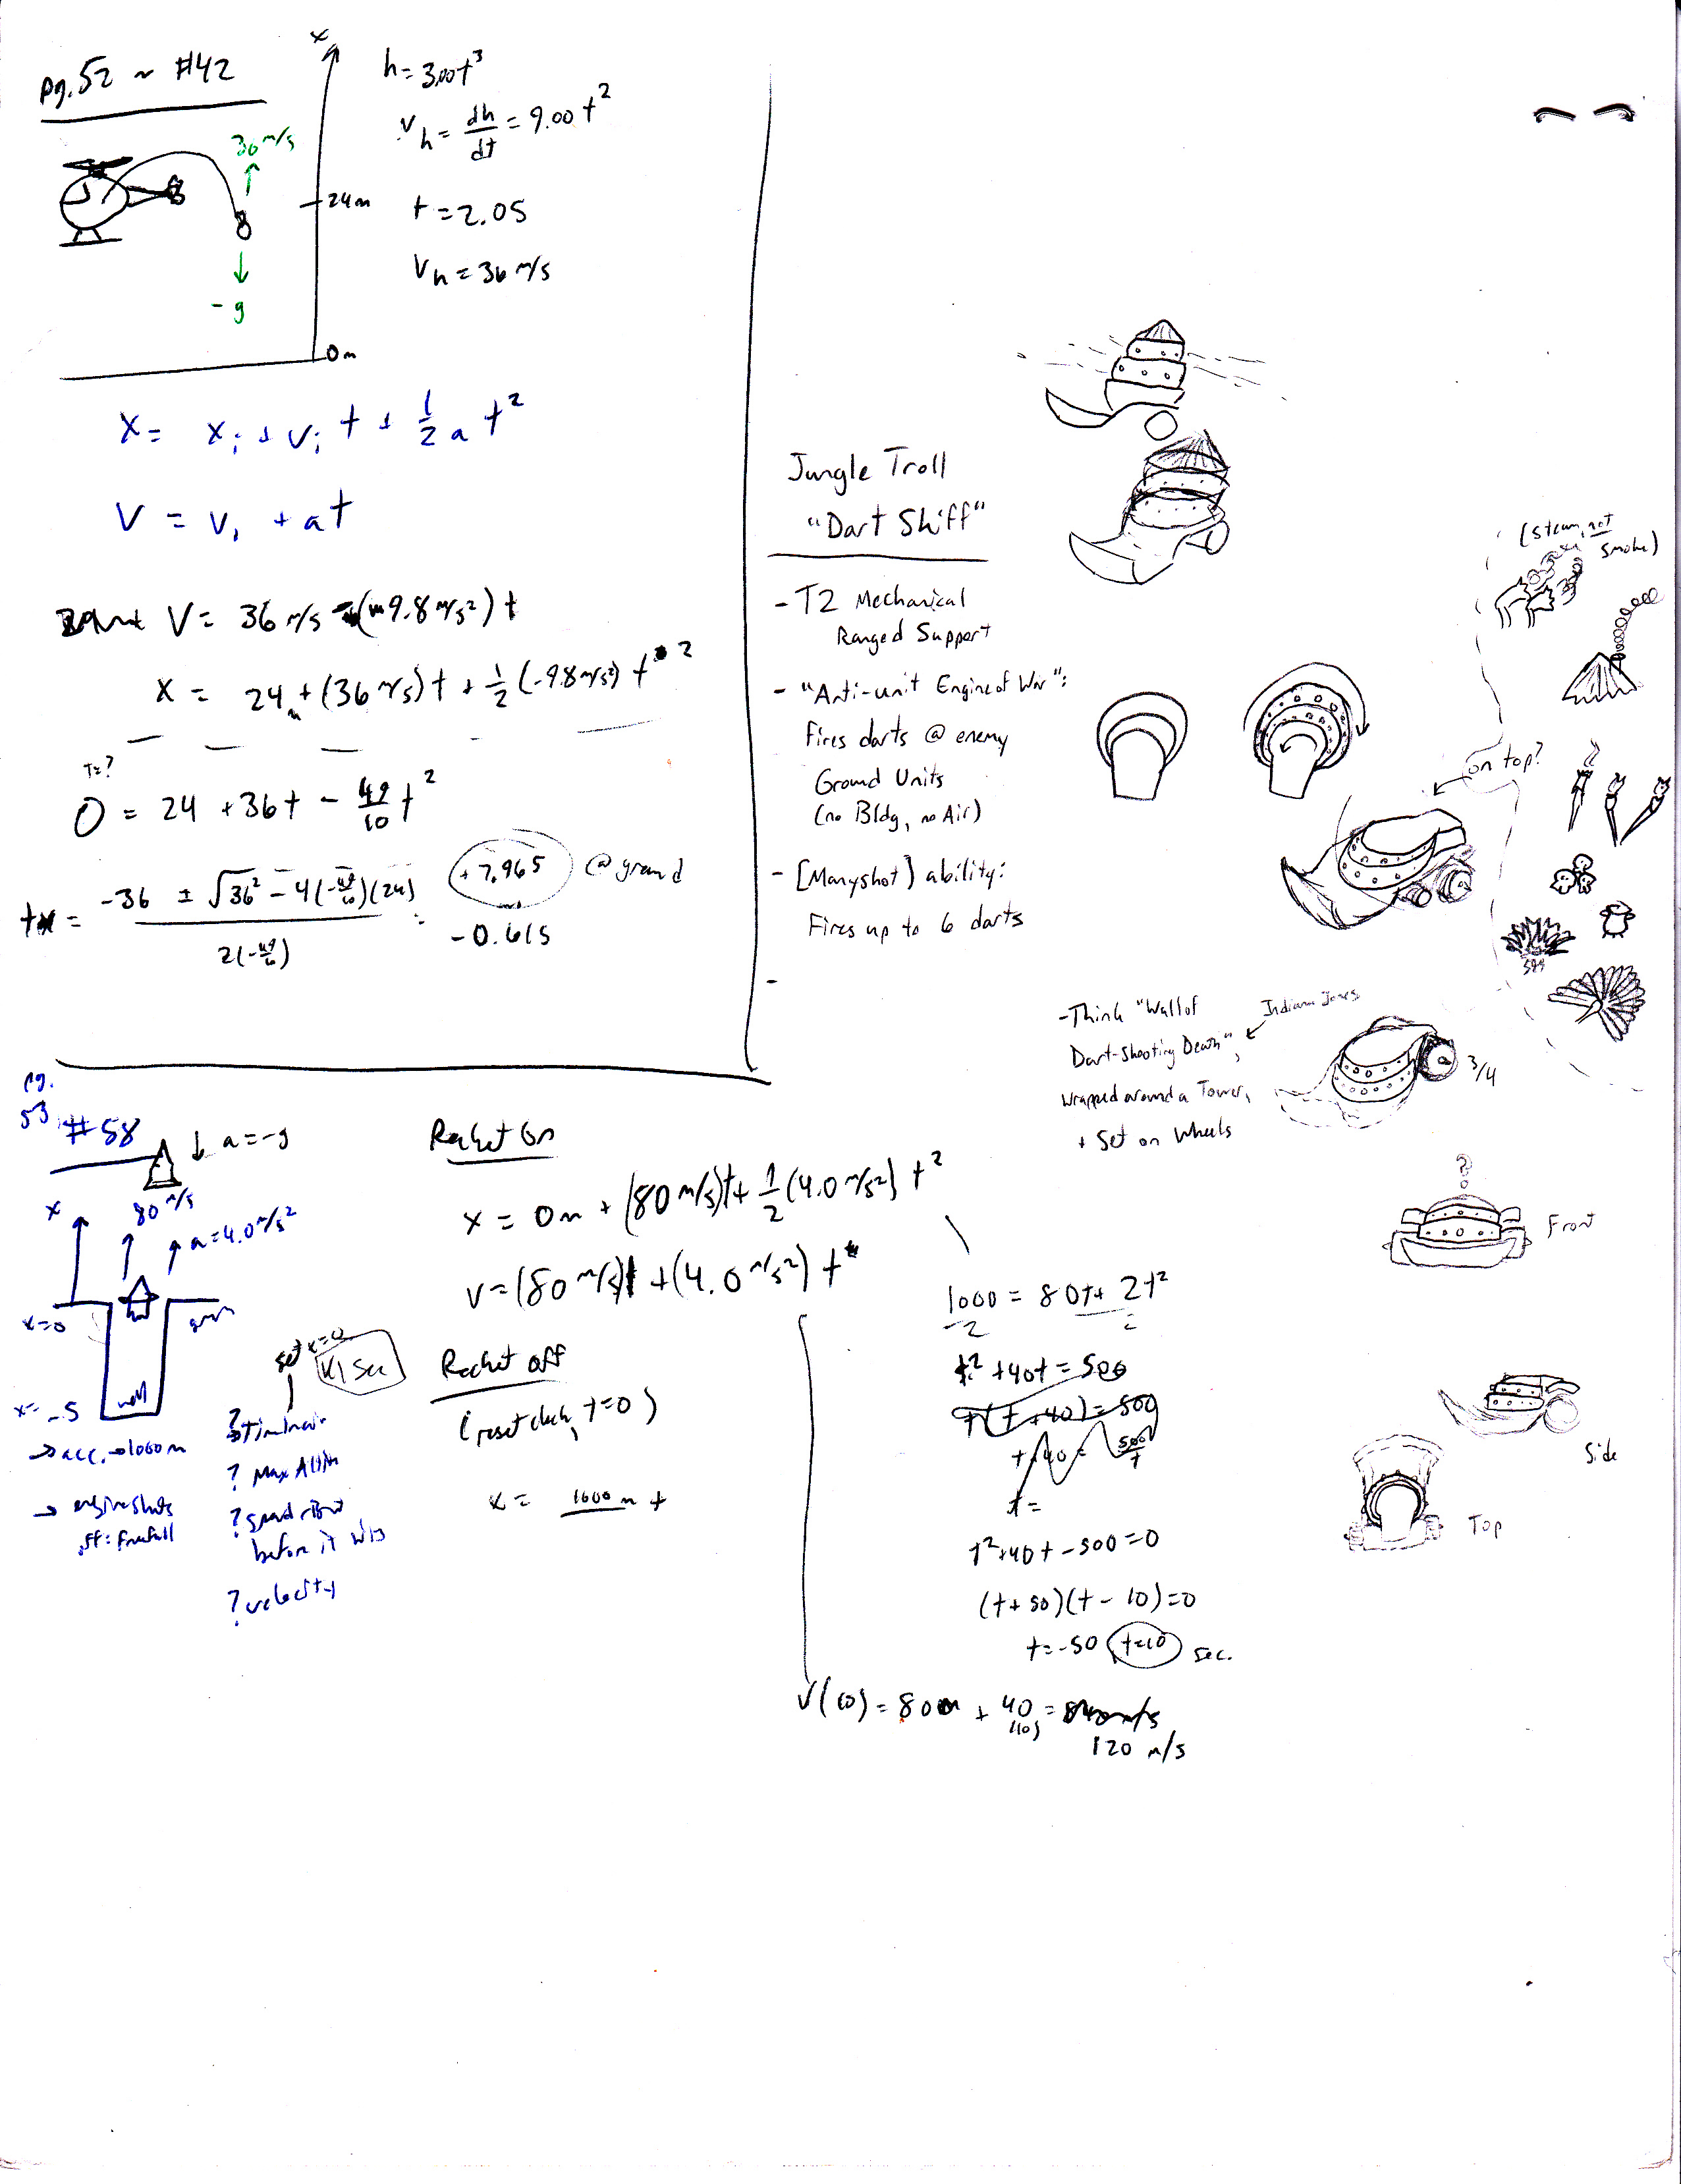 pg. 52 ~ #42
x
h = 3.00t³
v_h = dh/dt = 9.00 t²
30 m/s
24m
t = 2.05
V_h = 36 m/s
- g
0m
x = x_i + v_i t + 1/2 a t²
V = v_i + at
V = 36 m/s (9.8 m/s²) t
x = 24 m + (36 m/s) t + 1/2 (-9.8 m/s²) t²
T = ?
0 = 24 + 36t - 49/10 t²
t = -36 ± √36² - 4(-49/10)(24) / 2(-49/10) = +7.965 @ ground
-0.615
Jungle Troll
"Dart Shiff"
- T2 Mechanical
Ranged Support
- "Anti-unit Engine of War":
Fires darts @ enemy
Ground Units
(no Bldg, no Air)
- [Manyshot] ability:
Fires up to 6 darts
-
(steam, not
smoke)
on top?
- Think "Wall of
Dart-Shooting Death",
Indiana Jones
wrapped around a Tower,
+ Set on Wheels
3/4
?
Front
Side
Top
pg.
53 #58
a = -g
x
80 m/s
a = 4.0 m/s²
x=0
x= -5
well
→ acc. → 1000 m
→ engine shuts
off: freefall
set x=0
41 sec
? time in air
? Max Altit
?
before it hits
? velocity
Rocket On
x = 0m + (80 m/s)t + 1/2 (4.0 m/s²) t²
v = (80 m/s) + (4.0 m/s²) t
Rocket off
(reset clock, t=0)
x = 1000 m +
1000 = 80t + 2t²
2 2
t² + 40t = 500
t(t+40) = 500
t+40 = 500/t
t =
t² + 40t - 500 = 0
(t + 50)(t - 10) = 0
t = -50 t=10 sec.
V(10) = 80 + 40 =
120 m/s